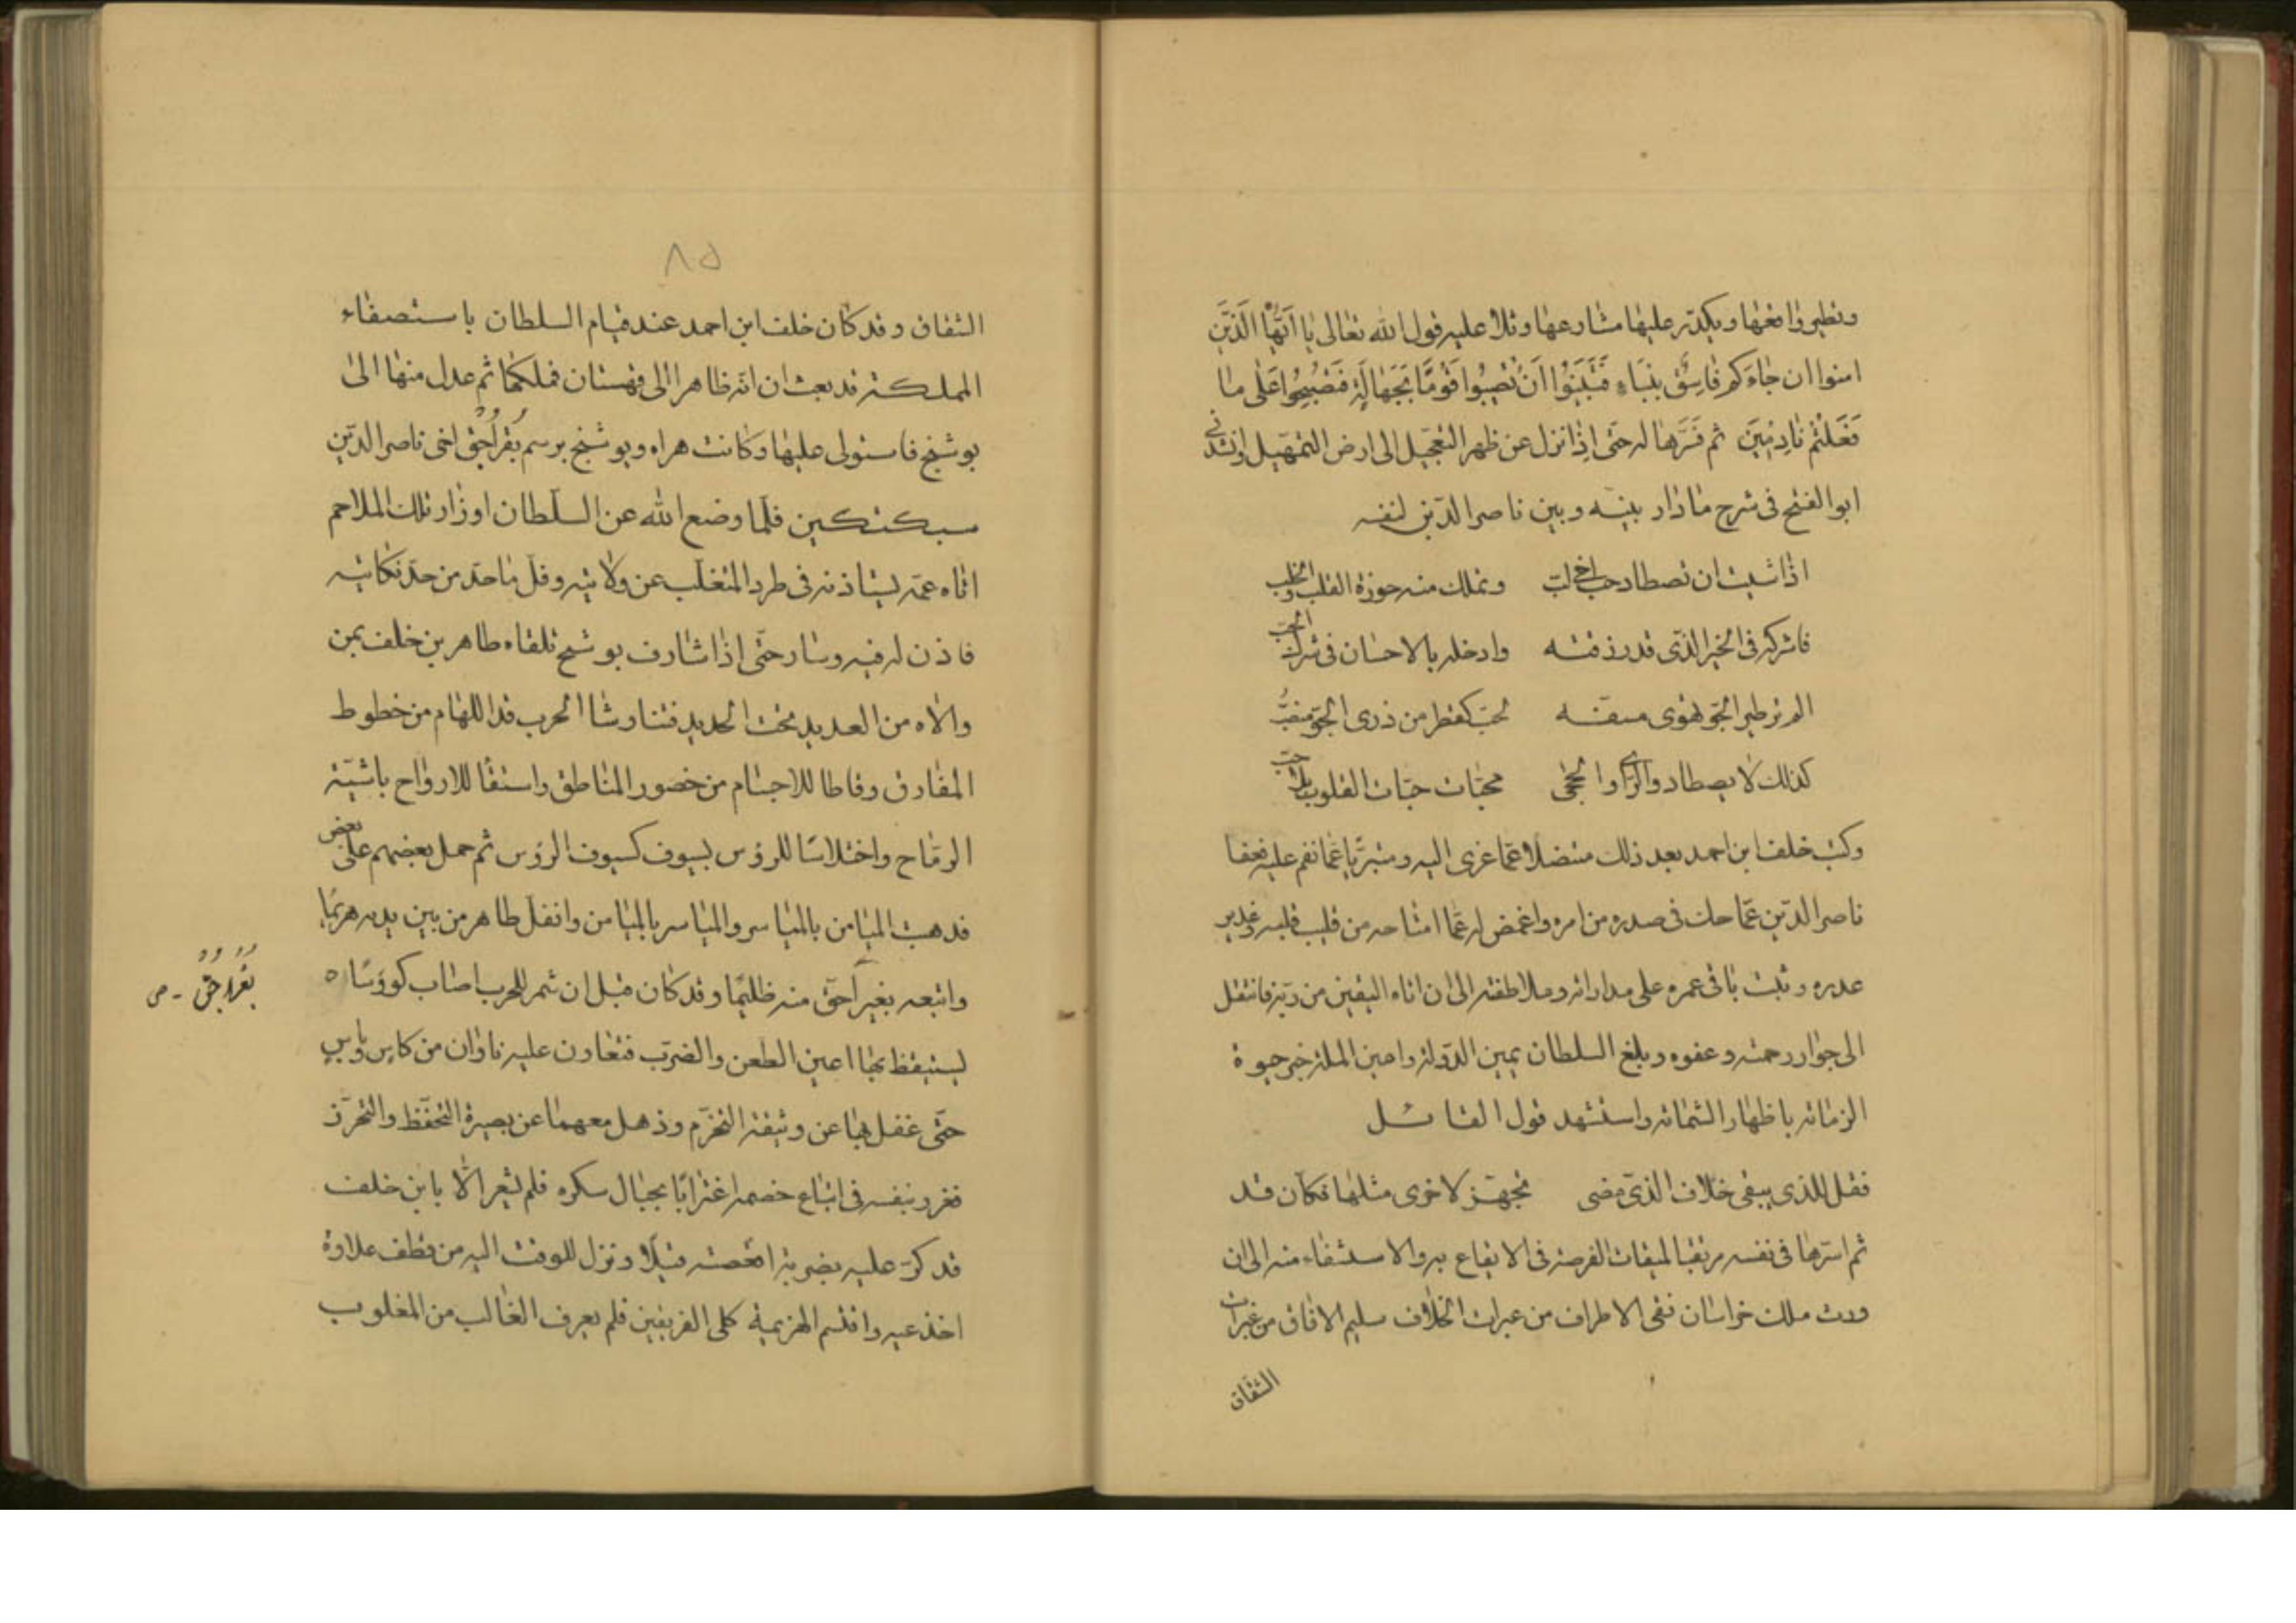 ونطير واقعها ويكدّر عليها مشارعها وتلا عليه قول الله تعالى يا ايّها الّذين
امنوا ان جاءكم فاسق بنباء فتبيّنوا ان تصيبوا قوما بجهالة فتصبحوا على ما
فعلتم نادمين ثم فسّرها له حتى اذا نزل عن ظهر التعجيل الى ارض التمهيل انشدنى
ابو الفتح فى شرح ما دار بينه وبين ناصر الدّين لنفسه
اذا شيت ان تصطاد حب اخى لبّ وتملك منه حوزة القلب والخلب
فاشركه فى الخير الذى قد رزقته وادخله بالاحسان فى شرك الحبّ
الم تر طير الجوّ تهوى مسفّه لحبّ كقطر من ذرى الجوّ منصبّ
كذلك لا يصطاد ذو الراى والحجى محبّات حبّات القلوب بلا حبّ
وكتب خلف ابن احمد بعد ذلك متنصلا عمّا عزى اليه ومتبرّيا عمّا نقم عليه فعفا
ناصر الدّين عمّا حك فى صدره من امره واغمض له عمّا امتاحه من قليب قلبه وغدير
غدره وثبت باقى عمره على مداراته وملاطفته الى ان اتاه اليقين من ربّه فانتقل
الى جوار رحمته وعفوه وبلغ السلطان يمين الدّولة وامين الملة خبر حيوة
الزمانه باظهار الشماته واستشهد قول القائل
فقل للذى يبقى خلاف الذى مضى تجهّز لاخرى مثلها فكان قد
ثم اسّرها فى نفسه مرتقبا لميقات الفرصة فى الايقاع به والاستشفاء منه الى ان
ورث ملك خراسان نقى الاطراف من عبرات الخلاف سليم الافاق من غبرات
الشقاق
٨٥
الشقاق وقد كان خلف ابن احمد عند قيام السلطان باستصفاء
المملكة قد بعث ابنه طاهرا الى قهستان فملكها ثم عدل منها الى
بوشنج فاستولى عليها وكانت هراه وبوشنج برسم بغراجق اخى ناصر الدّين
سبكتكين فلمّا وضع الله عن السلطان اوزار تلك الملاحم
اتاه عمّه يستاذنه فى طرد المتغلّب عن ولايته وفلّ ما حدّ من حدّ نكايته
فاذن له فيه وسار حتّى اذا شارف بوشنج تلقاه طاهر بن خلف بمن
والاه من العديد تحت الحديد فتناوشا الحرب قدّا للهام من خطوط
المفارق وقطا للاجسام من خصور المناطق واستقا للارواح باشية
الرماح واختلاسًا للرؤس بسيوف كسيوف الرؤس ثم حمل بعضهم على بعض
فذهبت الميامن بالمياسر والمياسر بالميامن وانفلّ طاهر من بين يديه هزيمًا
واتبعه بغيراجق منه ظليمًا وقد كان قبل ان شمر للحرب اصاب كووسًا
ليستيقظ بها اعين الطعن والضرب فتعاون عليه ناران من كاس وباس
حتّى غفل بها عن وثيقة التحزّم وذهل معهما عن بصيرة التحفّظ والتحرّز
فغرر بنفسه فى اتباع خصمه اغترابًا بجبال سكره فلم يشعر الّا بابن خلف
قد كرّ عليه بضربة اقعصته قتيلًا ونزل للوقت اليه من قطف علاوة
اخدعيه واقتسم الهزيمة كلى الفريقين فلم يعرف الغالب من المغلوب
بغراجق - ص